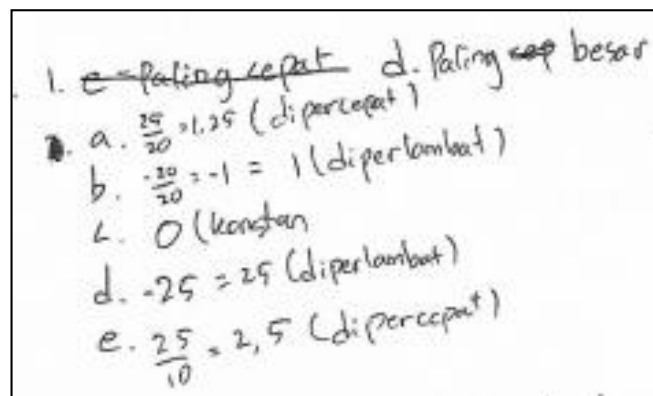 1. e - Paling cepat d. Paling cep besar
a. 25/20 = 1,25 (dipercepat)
b. -20/20 = -1 = 1 (diperlambat)
c. 0 (konstan
d. -25 = 25 (diperlambat)
e. 25/10 = 2,5 (dipercepat)